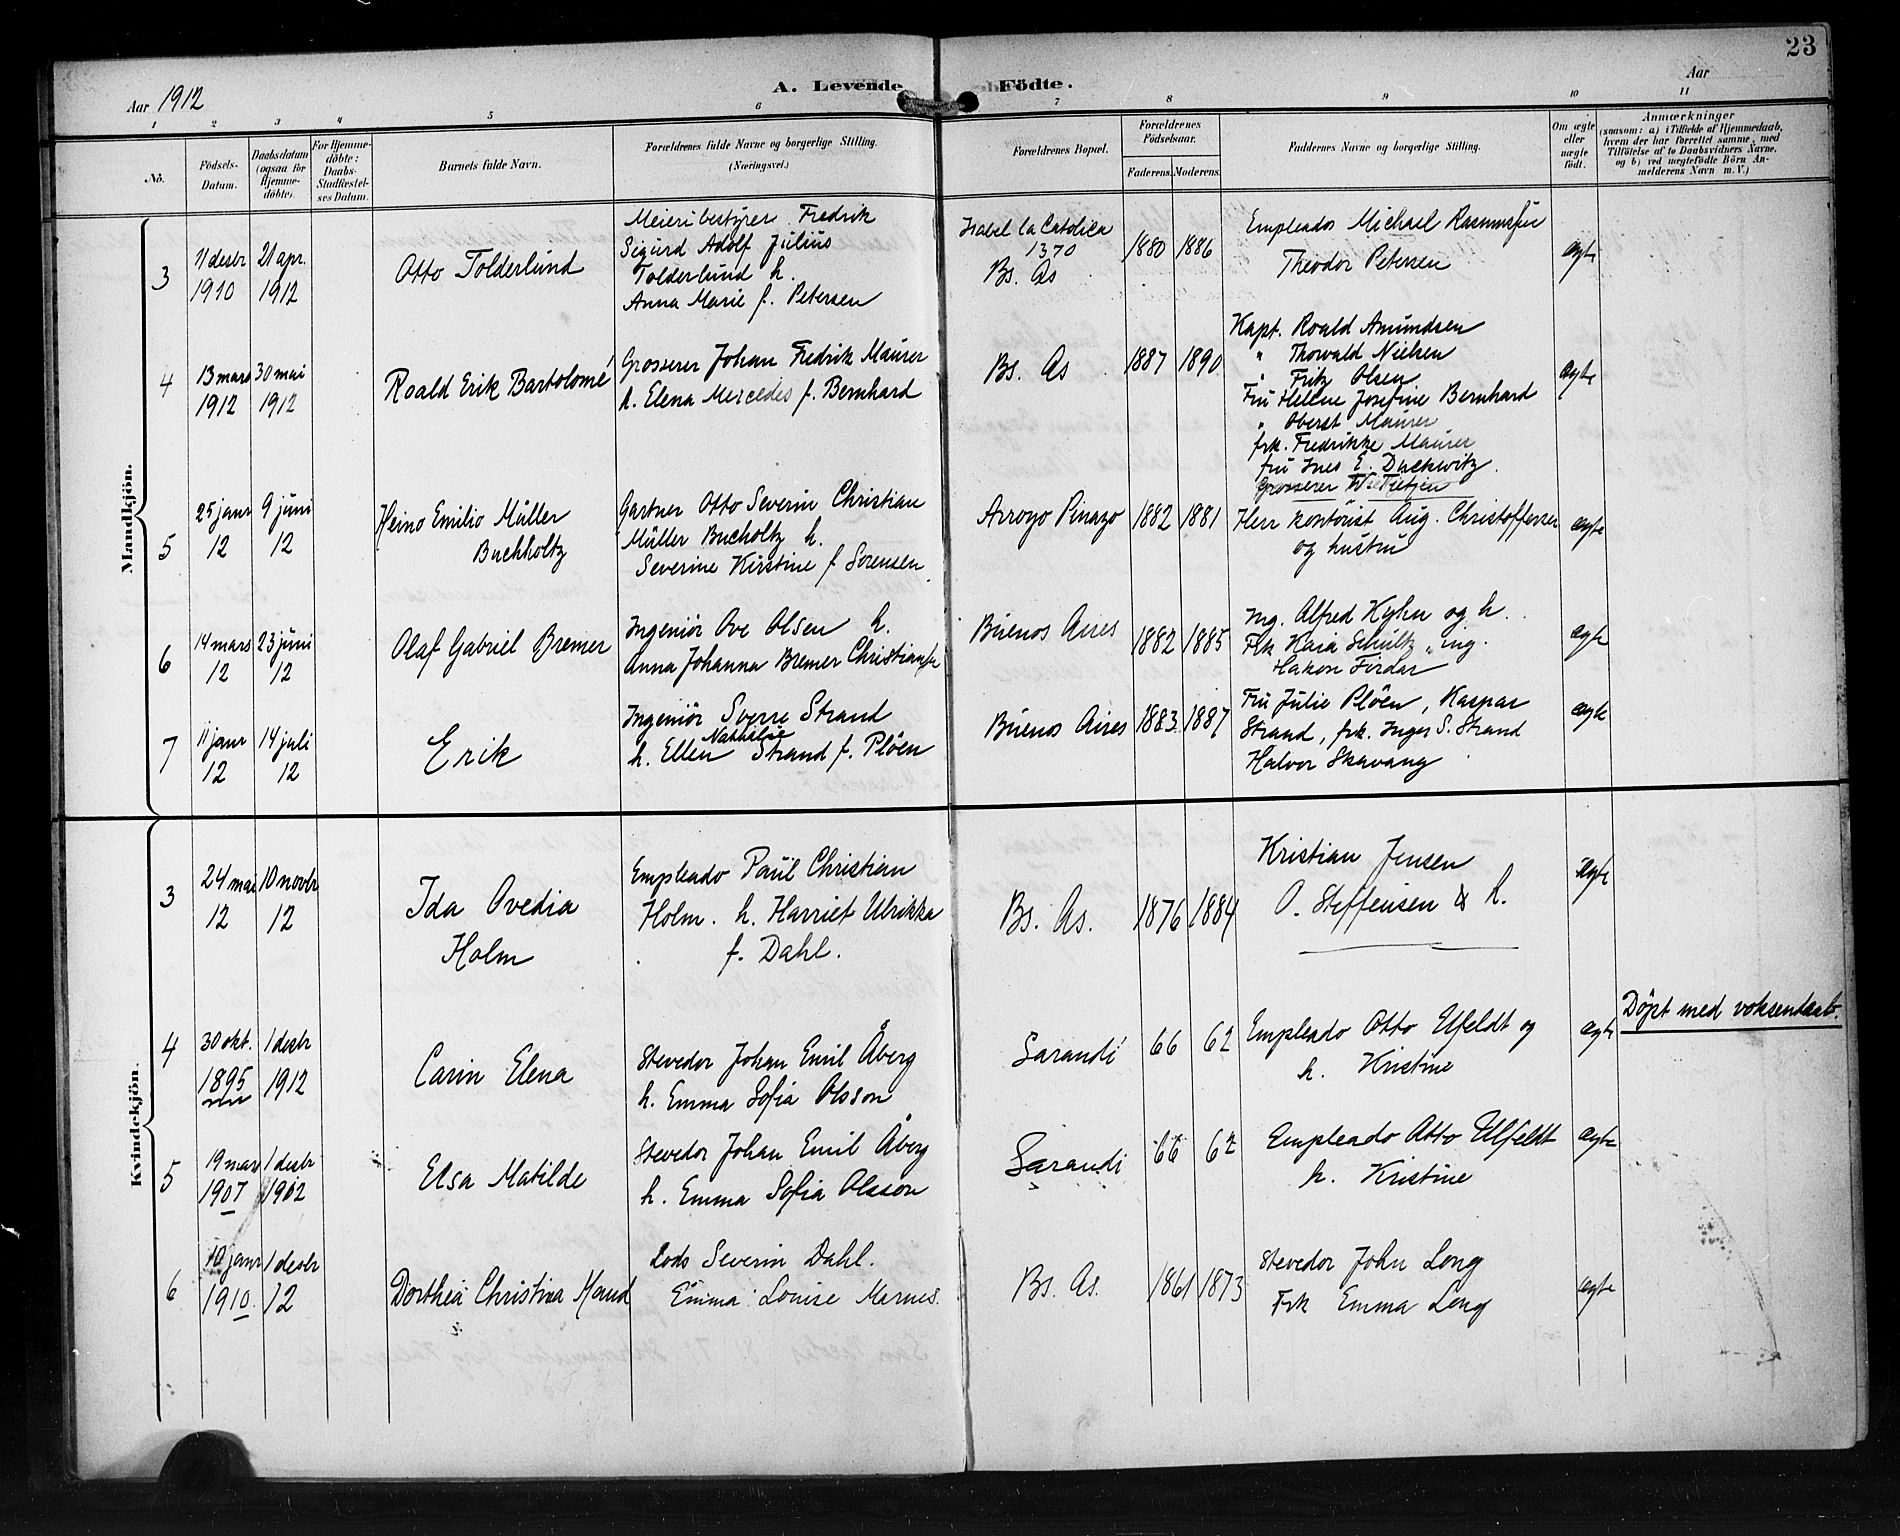 23
Aar 1912
A. Levende Födte.
Aar
1 2 3 4 5 6 7 8 9 10 11
No.
Födsels-Datum.
Daabsdatum (ogsaa for Hjemme-döbte).
For Hjemme-döbte: Daabs-Stadfæstel-ses Datum.
Barnets fulde Navn.
Forældrenes fulde Navne og borgerlige Stilling.
(Næringsvei.)
Forældrenes Bopæl.
Forældrenes Födselsaar.
Faderens. Moderens.
Faddernes Navne og borgerlige Stilling.
Om ægte eller uægte födt.
Anmærkninger
(saasom: a) i Tilfælde af Hjemmedaab,
hvem der har forrettet samme, med
Tilföielse af to Daabsvidners Navne,
og b) ved uægtefödte Börn An-
melderens Navn m. V.)
Mandkjön.
3
11 desbr
1910
21 apr.
1912
Otto Tolderlund
Meieribestyrer Fredrik
Sigurd Adolf Julius
Tolderlund h.
Anna Marie f. Petersen
Isabel la Catolica
1370
Bs. As
1880 1886
Empleados Michael Rasmussen
Theodor Petersen
ægte
4
13 mars
1912
30 mai
1912
Roald Erik Bartolomé
Grosserer Johan Fredrik Maurer
h. Elena Mercedes f. Bernhard
Bs. As
1887 1890
Kapt. Roald Amundsen
" Thorvald Nielsen
" Fritz Olsen
Fru Helene Josefine Bernhard
" Oberst Maurer
frk. Fredrikke Maurer
fru Ines E. Duckwitz.
Grosserer W. Tietjen
ægte
5
25 janr
12
9 juni
12
Heino Emilio Müller
Buchholtz
Gartner Otto Severin Christian
Müller Bucholtz h.
Severine Kirstine f Sorensen
Arroyo Pinazo
1882 1881
Herr kontorist Aug. Christoffersen
og hustru
ægte
6
14 mars
12
23 juni
12
Olaf Gabriel Bremer
Ingeniör Ove Olsen h.
Anna Johanna Bremer Christiansen
Buenos Aires
1882 1885
Ing. Alfred Kyhn og h.
Frk Kaia Schultz, ing.
Hakon Firdar
ægte
7
11 janr
12
14 juli
12
Erik
Ingeniör Sverre Strand
h. Ellen Nathalie Strand f. Plöen
Buenos Aires
1883 1887
Fru Julie Plöen, Kaspar
Strand, frk. Inger S. Strand
Halvor Skavang
ægte
Kvindekjön.
3
24 mai
12
10 novbr
12
Ida Ovedia
Holm
Empleado Paul Christian
Holm. h. Harriet Ulrikka
f. Dahl.
Bs. As.
1876 1884
Kristian Jensen
O. Steffensen & h.
ægte
4
30 okt.
1895
1 desbr
1912
Carin Elena
Stevedor Johan Emil Åberg
h. Emma Sofia Olsson
Sarandi
66 62
Empleado Otto Ulfeldt og
h. Kristine
ægte
Döpt med voksendaab.
5
19 mar
1907
1 desbr
1912
Elsa Matilde
Stevedor Johan Emil Åberg
h. Emma Sofia Olsson
Sarandi
66 62
Empleado Otto Ulfeldt
h. Kristine
ægte
6
10 janr
1910.
1 desbr
12
Dorthea Christina Maud
Lods Severin Dahl.
Emma Louise Marnes.
Bs. As.
1861 1873
Stevedor John Long
Frk Emma Long
ægte